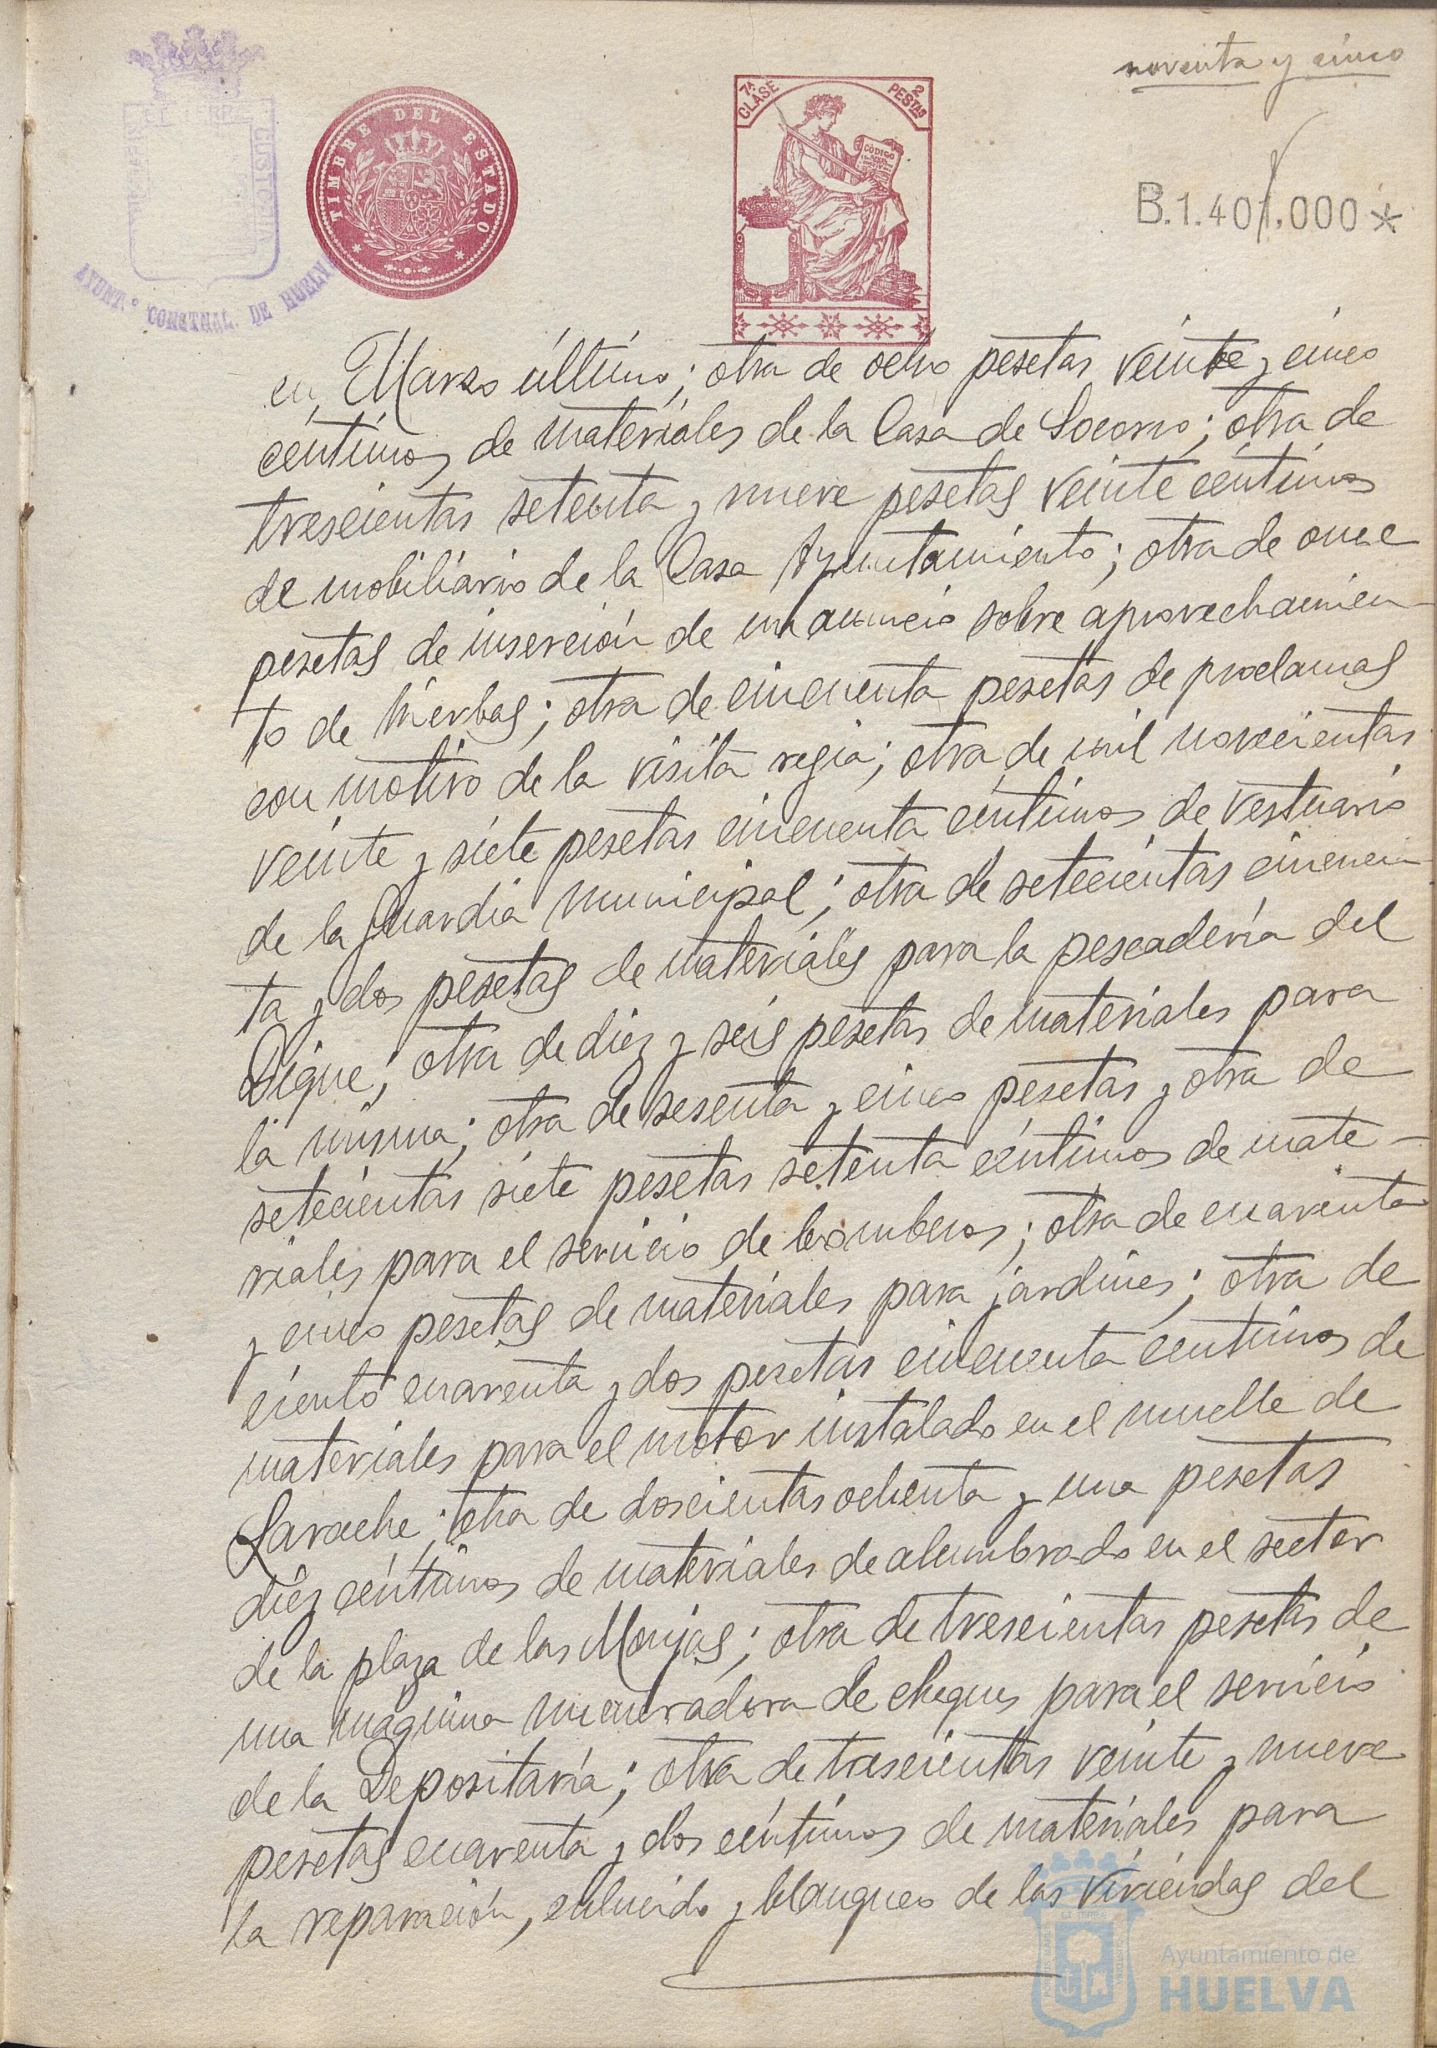 noventa y cinco
TIMBRE DEL ESTADO
7ª CLASE
2 PESTAS
CÓDIGO
B.1.401.000*
CUSTODIA
AYUNT.º CONSTNAL. DE HUELVA
en Marzo último; otra de ocho pesetas veinte y cinco
céntimos de materiales de la Casa de Socorro; otra de
trescientas setenta y nueve pesetas veinte céntimos
de mobiliario de la Casa Ayuntamiento; otra de once
pesetas de inserción de un anuncio sobre aprovechamien-
to de hierbas; otra de cincuenta pesetas de proclamas
con motivo de la visita regia; otra de mil novecientas
veinte y siete pesetas cincuenta céntimos de vestuario
de la Guardia Municipal; otra de setecientas cincuen-
ta y dos pesetas de materiales para la pescadería del
Dique; otra de diez y seis pesetas de materiales para
la misma; otra de sesenta y cinco pesetas y otra de
setecientas siete pesetas setenta céntimos de mate-
riales para el servicio de bomberos; otra de cuarenta
y cinco pesetas de materiales para jardines; otra de
ciento cuarenta y dos pesetas cincuenta céntimos de
materiales para el motor instalado en el muelle de
Larache; otra de doscientas ochenta y una pesetas
diez céntimos de materiales de alumbrado en el sector
de la plaza de las Monjas; otra de trescientas pesetas de
una maquina de cheques para el servicio
de la Depositaría; otra de trescientas veinte y nueve
pesetas cuarenta y dos céntimos de materiales para
la reparación, enlucido y blanqueo de las viviendas del
Ayuntamiento de
HUELVA